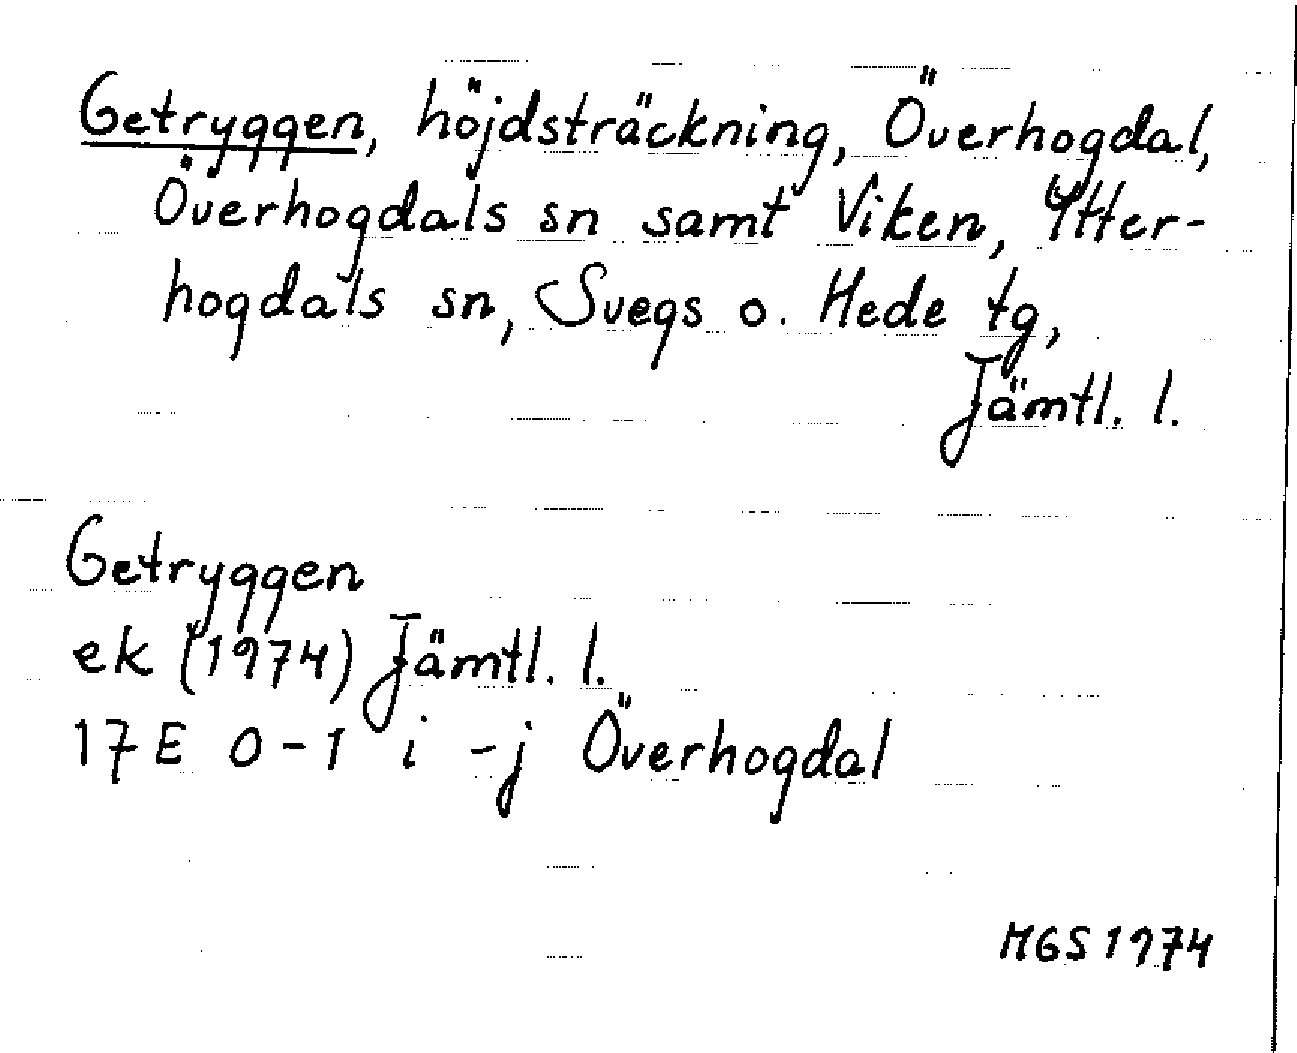 Getryggen, höjdsträckning, Överhogdal,
Överhogdals sn samt Viken, Ytter-
hogdals sn, Svegs o. Hede tg,
Jämtl. l.
Getryggen
ek (1974) Jämtl. l.
17E 0-1 i-j Överhogdal
MGS 1974